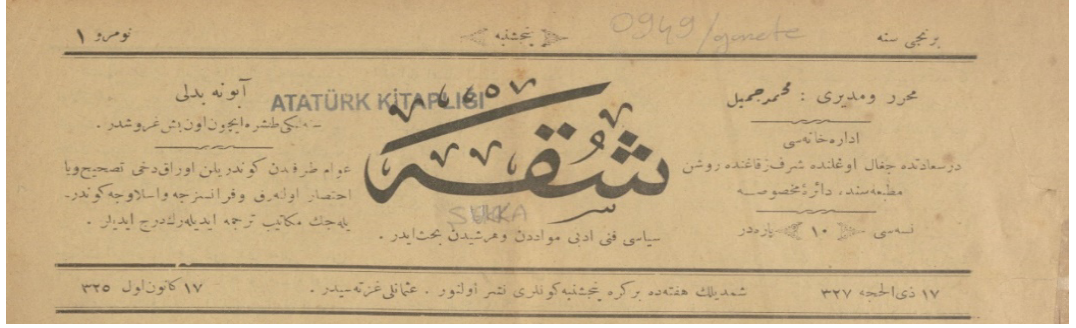 برنجی سنه
0949/gazete
پنجشنبه
نومرو ۱
محرر ومدیری : محمد جمیل
اداره خانه‌سی
درسعادتده جغال اوغلنده شرف زقاغنده روشن
مطبعه‌سنده دائرۀ مخصوصه
نسخه‌سی ۱۰ پاره‌در
ATATÜRK KİTAPLIĞI
شقه
SUKKA
سیاسی فنی ادبی مواددن وهرشیدن بحث ایدر .
آبونه بدلی
سنه‌لکی طشره ایچون اون بش غروشدر .
عوام طرفندن کوندریلن اوراق دخی تصحیح ویا
اختصار اوله‌رق وفرانسزجه واسلاوجه کوندر-
یله‌جك مکاتیب ترجمه ایدیله‌رك درج ایدیلر .
۱۷ ذی الحجه ۳۲۷
شمدیلك هفته‌ده بر کره پنجشنبه کونلری نشر اولنور . عثمانلی غزته‌سیدر .
۱۷ کانون اول ۳۲۵